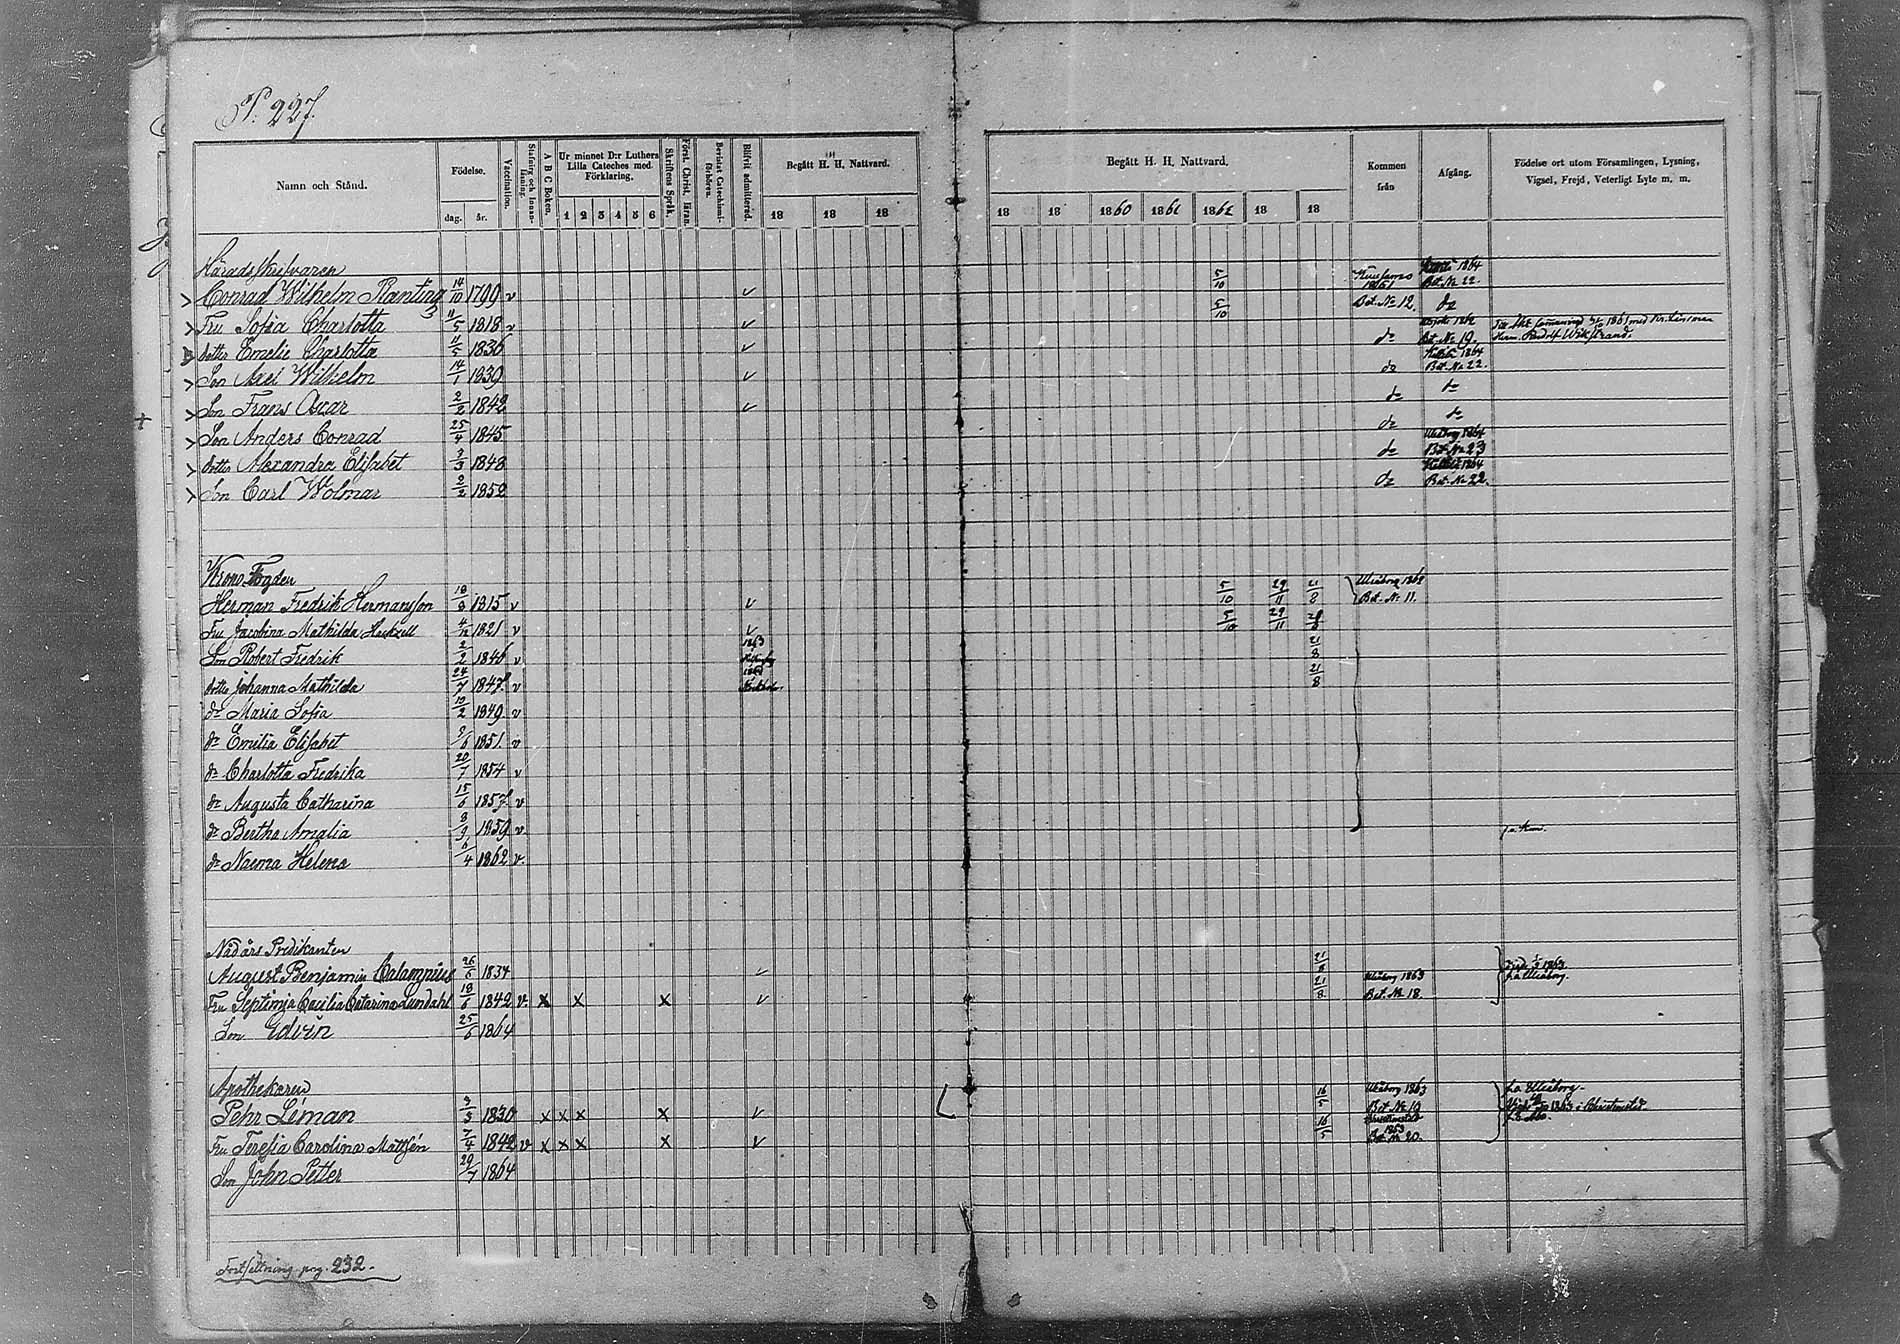 P. 227.
Namn och Stånd.
Födelse.
dag. år.
Vaccination.
Stafning och Innan-läsning.
A B C Boken.
Ur minnet D:r Luthers Lilla Cateches med Förklaring.
1 2 3 4 5 6
Skriftens Språk.
Först. Christ. läran.
Bevistat Catechismi-förhören.
Blifvit admitterad.
Begått H. H. Nattvard.
18 18 18
Begått H. H. Nattvard.
18 18 1860 1861 1862 18 18
Kommen från
Afgång.
Födelse ort utom Församlingen, Lysning, Vigsel, Frejd, Veterligt Lyte m. m.
Häradsskrifvaren
Conrad Wilhelm Planting 14/10 1799 v v 5/10 Kuusamo 1861 Bet. No 12. 1864 Bet. No 22.
Fru Sofia Charlotta 11/5 1818 v v 5/10 do
Dotter Emelie Charlotta 11/5 1836 v do 1862 Bet. No 19.
Son Axel Wilhelm 14/1 1839 v do 1864 Bet. No 22.
Son Frans Oscar 2/2 1842 v do do
Son Anders Conrad 25/4 1845 do do
Dotter Alexandra Elisabet 3/3 1848 do Uleåborg 1864 Bet. No 23
Son Carl Wolmar 2/2 1852 do 1864 Bet. No 22.
Krono Fogden
Herman Fredrik Hermansson 18/8 1815 v v 5/10 29/11 21/8 Uleåborg 1862 Bet. No 11.
Fru Jacobina Mathilda Heckzell 4/12 1821 v v 5/10 29/11
Son Robert Fredrik 2/2 1846 v 1863 21/8
Dotter Johanna Mathilda 24/7 1847 v 21/8
do Maria Sofia 10/2 1849 v
do Emelia Elisabet 9/6 1851. v
do Charlotta Fredrika 20/7 1854 v
do Augusta Catharina 15/6 1857. v
do Bertha Amalia 8/9 1859 v
do Naema Helena 6/4 1862 v.
Nådårs Predikanten
August Benjamin Calamnius 26/6 1834 v 21/8 1863
Fru Septimia Cecilia Catarina Lundahl 18/6 1842 v. x x x v 21/8 Uleåborg 1863 Bet. No 18. Uleåborg.
Son Edvin 25/6 1864
Apothekaren
Pehr Léman 3/3 1830 x x x x v 16/5 Uleåborg 1863 Bet. No 19 f.a. Uleåborg
Fru Teresia Carolina Mattsén 7/4 1842 v x x x x v 16/5 1863 Bet. No 20. 1863 i Christinestad
Son John Petter 29/7 1864
Fortsättning pag. 232.